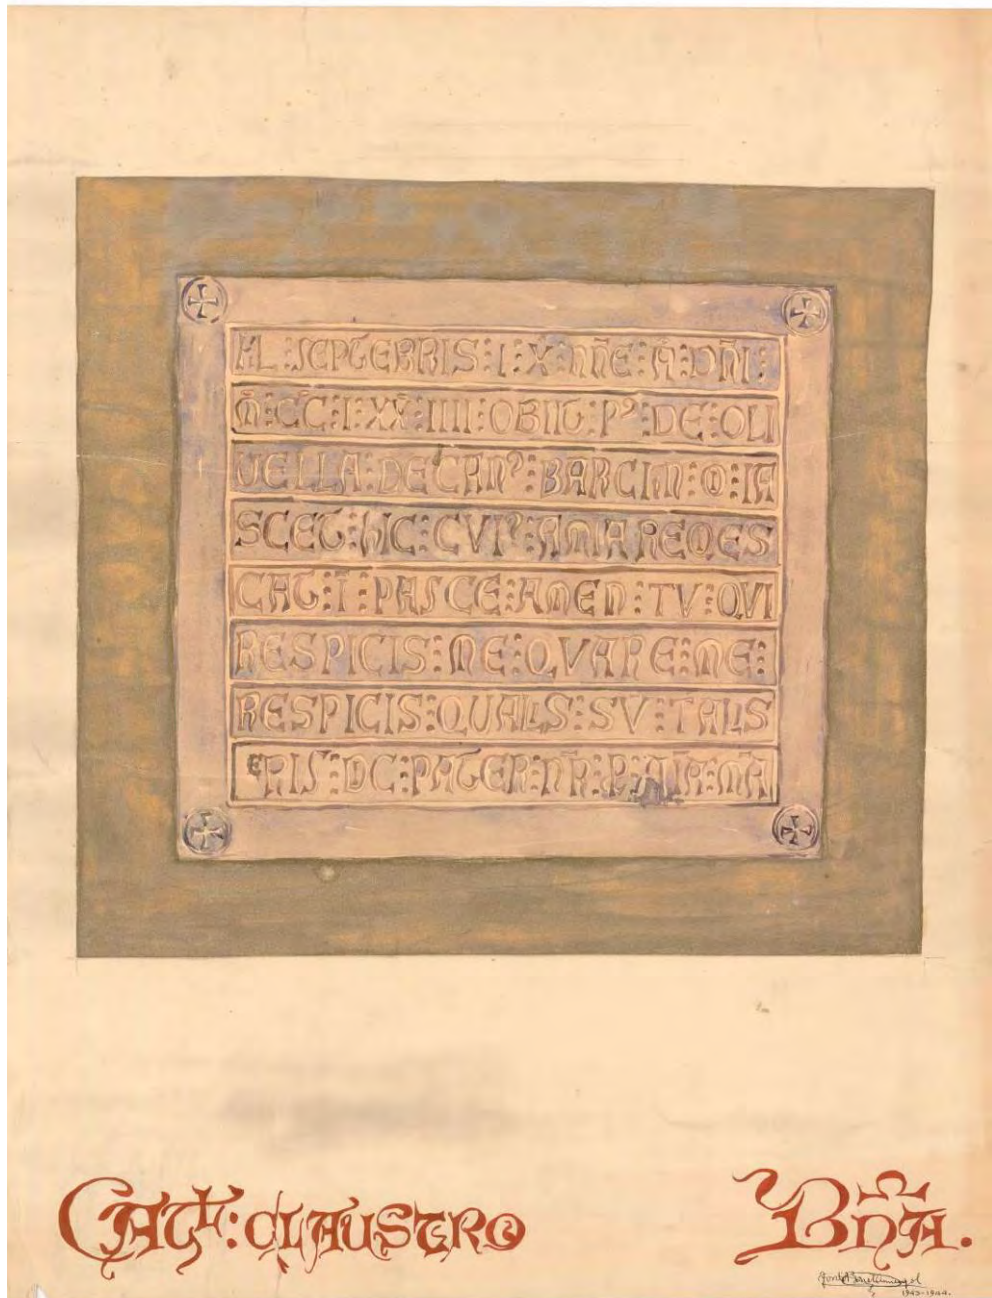 KL : SEPTEBRIS : I : X̄ : NN̄E : Ā : DN̄I :
M̄ : C̄C : I : XX̄ : IIII : OBIIT : P⁹ : DE : OLI
VELLA : DE : CAN⁹ : BARCIN : O : IA
SCET : HIC : CVI⁹ : ANIA REQES
CAT : Ī : PASCE : AMEN : TV : QVI
RESPICIS : ME : QVARE : ME :
RESPICIS : QUALIS : SV : TALIS
ERIS : DC : PATER : NR̄ : P : AĪA : MĀ
CATH : CLAUSTRO
BNA.
1943-1944.